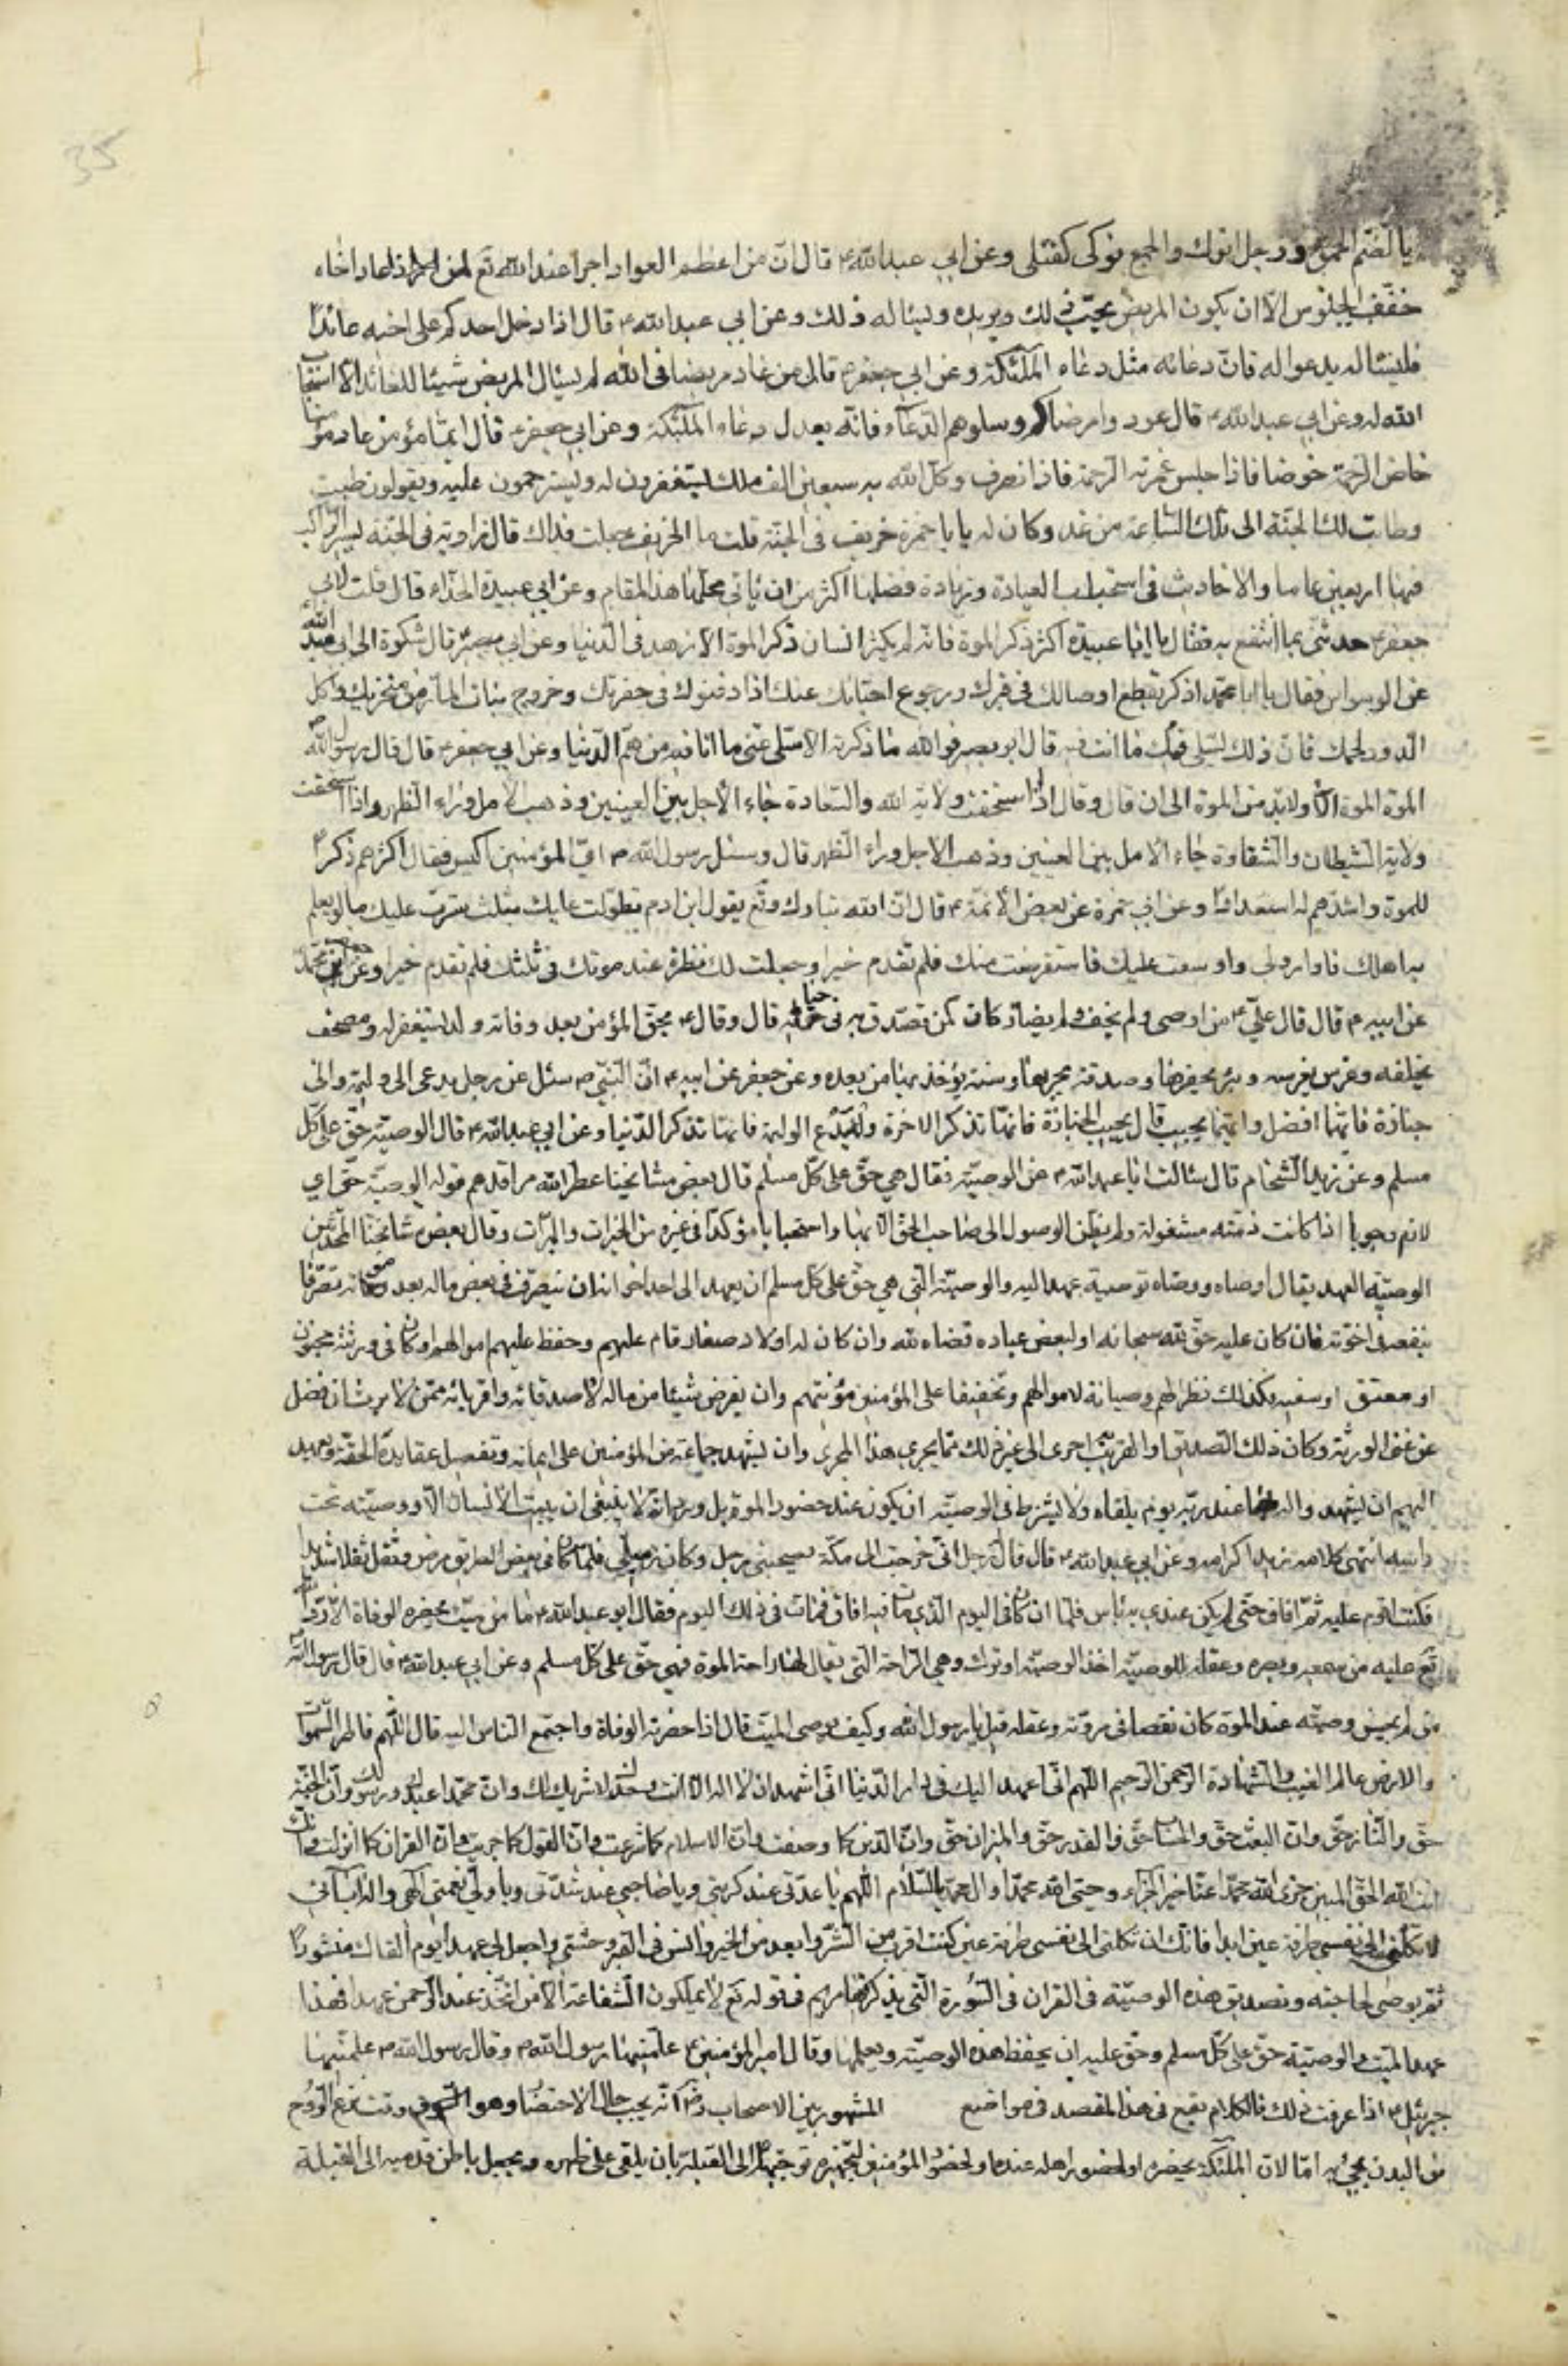 يا لضم الحمق ورجل انوك والجمع نوكى كقتلى وعن ابي عبدالله ع قال انّ من اعظم العواد اجرا عند الله تع لمن اذا عاد اخاه
خفّف الجلوس الّا ان يكون المريض يحبّ ذلك ويريده ويسئاله ذلك وعن ابي عبدالله ع قال اذا دخل احدكم على اخيه عائدا
فليسئاله يدعو اله فانّ دعائه مثل دعاء الملئكة وعن ابي جعفر ع قال من عاد مريضا فى الله لم يسئال المريض شيئا للعائد الّا استجاب
الله له وعن ابي عبدالله ع قال عودوا مرضاكم وسلوهم الدعاء فانّه يعدل دعاء الملئكة وعن ابي جعفر ع قال ايمّا مؤمن عاد مؤمنا
خاض الرحمة خوضا فاذا جلس غمرته الرحمة فاذا انصرف وكّل الله به سبعين الف ملك يستغفرون له ويسترحمون عليه ويقولون طبت
وطابت لك الجنّة الى تلك الساعة من غد وكان له يا با حمزة خريف فى الجنّة قلت ما الخريف جعلت فداك قال زاوية فى الجنّة يسير الراكب
فيها اربعين عاما والاحاديث فى استحباب العيادة وزيادة فضلها اكثر من ان ياتى محلّها هذا المقام وعن ابي عبيدة الحذّاء قال قلت لابي
جعفر ع حدثنى بما انتفع به فقال يا ابا عبيدة اكثر ذكر الموة فانّه لم يكثر انسان ذكر الموة الّا زهد فى الدّنيا وعن ابي بصير قال شكوة الى ابي عبد الله
عن الوسواس فقال يا ابا محمّد اذكر تقطع اوصالك فى قبرك ورجوع احبّائك عنك اذا دفنوك فى حفرتك وخروج بنات الماء من منخريك واكل
الدود لحمك فانّ ذلك يسلى عنك ما انت فيه قال ابو بصير فو الله ما ذكرته الّا سلى عنّى ما انا فيه من همّ الدّنيا وعن ابي جعفر ع قال قال رسول الله
الموة الموة الا ولابدّ من الموة الى ان قال وقال اذا استحقت ولاية الله والسعادة جاء الاجل بين العينين وذهب الامل وراء الظهر واذا استحقت
ولاية الشيطان والشقاوة جاء الامل بين العينين وذهب الاجل وراء الظهر قال وسئل رسول الله ص ايّ المؤمنين اكيس فقال اكثرهم ذكرا
للموة واشدّهم له استعدادا وعن ابي حمزة عن بعض الأئمّة ع قال انّ الله تبارك وتع يقول ابن ادم تطوّلت عليك بثلث سترت عليك ما لو يعلم
به اهلك ما واروك واوسعت عليك فاستقرضت منك فلم تقدم خيرا وجعلت لك نظرة عند موتك فى ثلثك فلم تقدم خيرا وعن جعفر بن محمّد
عن ابيه ع قال قال عليّ ع من اوصى ولم يحف ولم يضارّ كان كمن تصدّق به فى حياته قال وقال ع يلحق المؤمن بعد وفاته ولد يستغفر له ومصحف
يخلفه وغرس يغرسه وبئر يحفرها وصدقة يجريها وسنة يؤخذ بها من بعده وعن جعفر عن ابيه ع انّ النّبيّ ص سئل عن رجل يدعى الى وليمة والى
جنازة فايّهما افضل وايّهما يجيب قال يجيب الجنازة فانّها تذكر الاخرة وليدع الوليمة فانّها تذكر الدّنيا وعن ابي عبدالله ع قال الوصيّة حقّ على كلّ
مسلم وعن زيد الشحّام قال سئالت ابا عبدالله ع عن الوصيّة فقال هي حقّ على كلّ مسلم قال بعض مشايخنا عطّر الله مراقدهم قوله الوصيّة حقّ اي
لازم وجوبا اذا كانت ذمّته مشغولة ولم يظنّ الوصول الى صاحب الحقّ الّا بها واستحبابا مؤكدا فى غيره من الخيرات والمبرّات وقال بعض مشايخنا المحدّثين
الوصيّة العهد يقال اوصاه ووصّاه توصية عهد اليه والوصيّة الّتى هي حقّ على كلّ مسلم ان يعهد الى احد اخوانه ان يتصرّف فى بعض ماله بعد موته تصرّفا
ينفعه فى اخرته فان كان عليه حقّ لله سبحانه او لبعض عباده قضاه لله وان كان له اولاد صغار قام عليهم وحفظ عليهم اموالهم او كان فى ورثته مجنون
او معتق او سفيه فكذلك نظرا لهم وصيانة لاموالهم وتخفيفا على المؤمنين مؤنتهم وان يفرض شيئا من ماله لاصدقائه واقربائه ممّن لا يرث ان فضل
عن غنى الورثة وكان ذلك الصديق او القريب احرى الى غير ذلك ممّا يجري هذا المجرى وان يشهد جماعة من المؤمنين على ايمانه وتفصيل عقايده الحقّة ويعهد
اليهم ان يشهدوا له بها عند ربّه يوم يلقاه ولا يشترط فى الوصيّة ان يكون عند حضور الموة بل وربما لا ينبغى ان يبيت الانسان الّا ووصيّته تحت
راسه انتهى كلامه زيد اكرامه وعن ابي عبدالله ع قال قال له رجل انّى خرجت الى مكّة فصحبنى رجل وكان زميلى فلمّا كان فى بعض الطريق مرض وثقل ثقلا شديدا
فكنت اقوم عليه ثمّ افاق حتّى لم يكن عندي به باس فلمّا ان كان فى اليوم الّذي مات فيه افاق فمات فى ذلك اليوم فقال ابو عبدالله ع ما من ميّت يحضره الوفاة الّا ردّ الله
تع عليه من سمعه وبصره وعقله للوصيّة اخذ الوصيّة او ترك وهي الراحة الّتى يقال لها راحة الموة فهي حقّ على كلّ مسلم وعن ابي عبدالله ع قال قال رسول الله
من لم يحسن وصيّته عند الموة كان نقصا فى مروّته وعقله قيل يا رسول الله وكيف يوصى الميّت قال اذا حضرته الوفاة واجتمع الناس اليه قال اللّهم فاطر السموات
والارض عالم الغيب والشهادة الرّحمن الرّحيم اللّهم انّى اعهد اليك فى دار الدّنيا انّى اشهد ان لا اله الّا انت وحدك لا شريك لك وانّ محمّدا عبدك ورسولك وانّ الجنّة
حقّ والنّار حقّ وانّ البعث حقّ والحساب حقّ والقدر حقّ والميزان حقّ وانّ الدّين كما وصفت وانّ الاسلام كما شرعت وانّ القول كما حدثت وانّ القران كما انزلت وانّك
انت الله الحقّ المبين جزى الله محمّدا عنّا خير الجزاء وحيّى الله محمّدا وال محمّد بالسّلام اللّهم يا عدّتى عند كربتي ويا صاحبي عند شدّتى ويا وليّ نعمتى الهى واله ابائى
لا تكلنى الى نفسى طرفة عين ابدا فانّك ان تكلنى الى نفسى طرفة عين كنت اقرب من الشرّ وابعد من الخير وانس فى القبر وحشتى واجعل لى عهدا يوم القاك منشورا
ثمّ يوصى بحاجته وتصديق هذه الوصيّة فى القران فى السّورة الّتى يذكر فيها مريم فى قوله تع لا يملكون الشفاعة الّا من اتّخذ عند الرّحمن عهدا فهذا
عهد الميّت والوصيّة حقّ على كلّ مسلم وحقّ عليه ان يحفظ هذه الوصيّة ويعلّمها وقال امير المؤمنين ع علّمنيها رسول الله ص وقال رسول الله ص علّمنيها
جبرئيل ع اذا عرفت ذلك فالكلام يقع فى هذا المقصد فى مواضع المشهور بين الاصحاب رض انّه يجب حال الاحتضار وهو السّوق وقت نزع الرّوح
من البدن سمّي به امّا لانّ الملئكة يحضره او لحضور اهله عنده او لحضور المؤمنين لتجهيزه توجيهه الى القبلة بان يلقى على ظهره ويجعل باطن قدميه الى القبلة